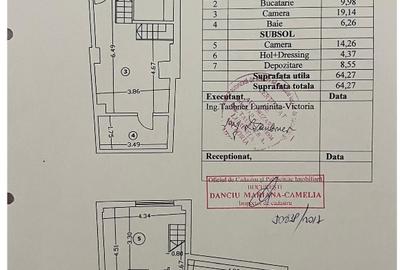 2 Bucatarie 9,98
3 Camera 19,14
4 Baie 6,26
SUBSOL
5 Camera 14,26
6 Hol+Dressing 4,37
7 Depozitare 8,55
Suprafata utila 64,27
Suprafata totala 64,27
Executant, Data
Ing.Taubner Luminita-Victoria
Receptionat, Data
Oficiul de Cadastru si Publicitate Imobiliara
BUCURESTI
DANCIU MARIANA-CAMELIA
Inspector de cadastru
6.49
3
4.67
3.86
1.75
4
3.49
4.34
4.51
3.30
5
0.80